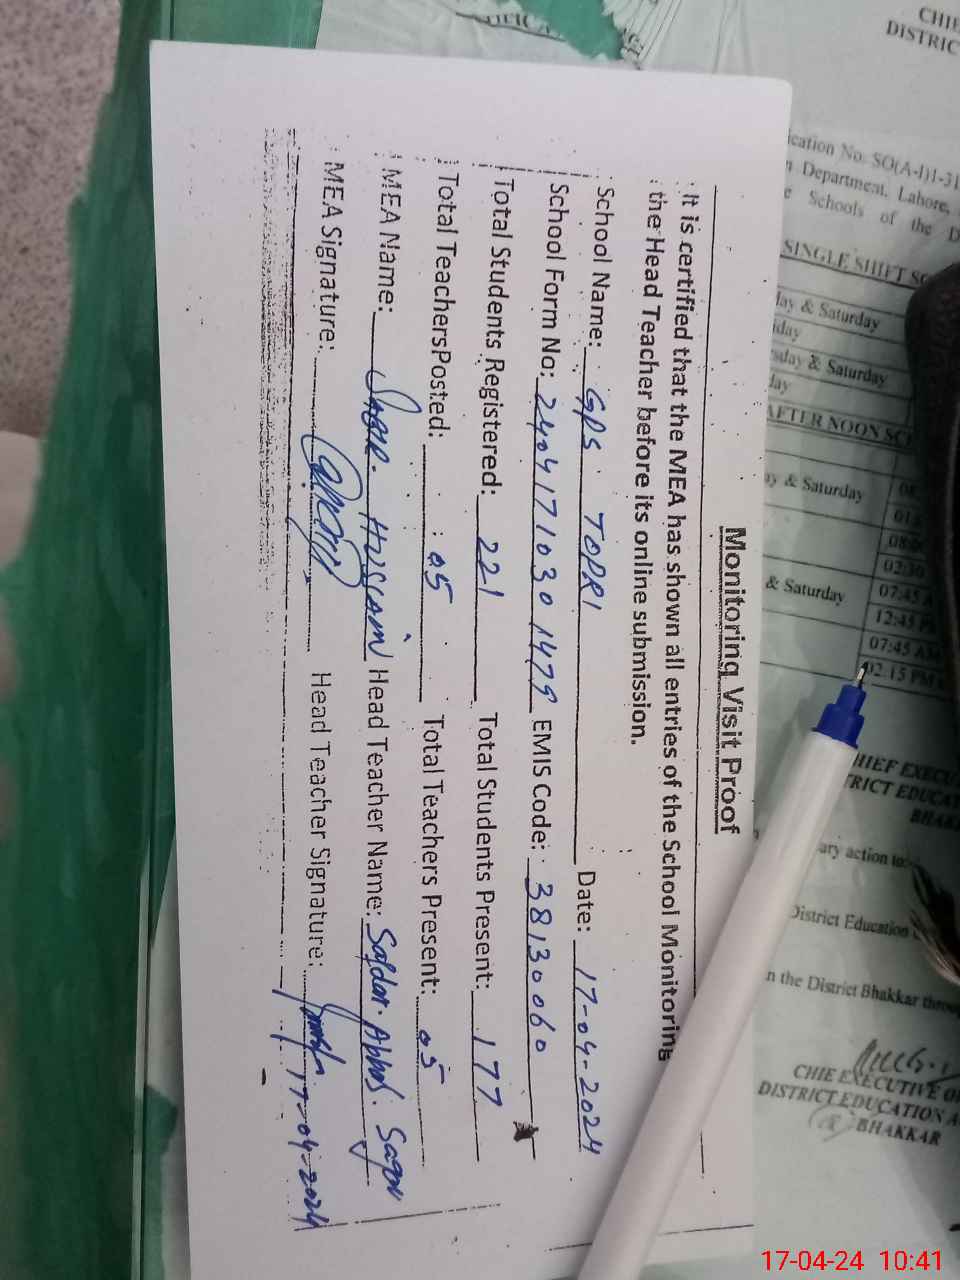 Monitoring Visit Proof
It is certified that the MEA has shown all entries of the School Monitoring
the Head Teacher before its online submission.
School Name: GPS TOPRI Date: 17-04-2024
School Form No: 24041710301479 EMIS Code: 38130060
Total Students Registered: 221 Total Students Present: 177
Total TeachersPosted: 05 Total Teachers Present: 05
MEA Name: Husnain Head Teacher Name: Safdar Abbas
MEA Signature: Head Teacher Signature: 17-04-2024
CHIE
DISTRIC
ication No. SO(A-I)1-31
Department, Lahore,
Schools of the D
SINGLE SHIFT SC
ay & Saturday
iday
sday & Saturday
day
AFTER NOON SC
ay & Saturday
& Saturday
07:45 A
12:45 P
07:45 AM
02:15 PM
HIEF EXECU
RICT EDUCAT
BHAK
ary action to:
District Education
n the District Bhakkar throu
CHIE EXECUTIVE O
DISTRICT EDUCATION A
BHAKKAR
17-04-24 10:41